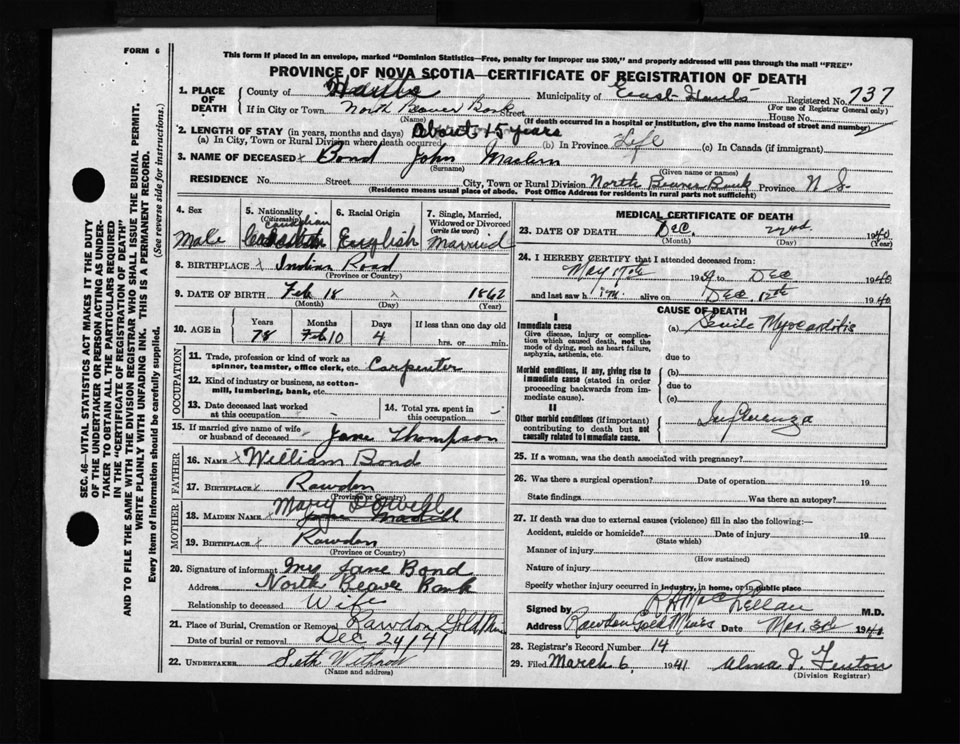 FORM 6
This form if placed in an envelope, marked "Dominion Statistics—Free, penalty for improper use $300," and properly addressed will pass through the mail "FREE"
PROVINCE OF NOVA SCOTIA—CERTIFICATE OF REGISTRATION OF DEATH
SEC. 46—VITAL STATISTICS ACT MAKES IT THE DUTY
OF THE UNDERTAKER OR PERSON ACTING AS UNDER-
TAKER TO OBTAIN ALL THE PARTICULARS REQUIRED
IN THE "CERTIFICATE OF REGISTRATION OF DEATH"
AND TO FILE THE SAME WITH THE DIVISION REGISTRAR WHO SHALL ISSUE THE BURIAL PERMIT.
WRITE PLAINLY WITH UNFADING INK. THIS IS A PERMANENT RECORD.
Every item of information should be carefully supplied. (See reverse side for instructions.)
1. PLACE OF DEATH
County of Hants Municipality of East Hants Registered No. 737
(For use of Registrar General only)
If in City or Town North Beaver Bank Street House No.
(Name) (If death occurred in a hospital or institution, give the name instead of street and number)
2. LENGTH OF STAY (in years, months and days) About 15 years
(a) In City, Town or Rural Division where death occurred (b) In Province Life (c) In Canada (if immigrant)
3. NAME OF DECEASED x Bond John
(Surname) (Given name or names)
RESIDENCE No. Street City, Town or Rural Division North Beaver Bank Province N S.
(Residence means usual place of abode. Post Office Address for residents in rural parts not sufficient)
4. Sex Male
5. Nationality (Citizenship) Canadian
6. Racial Origin English
7. Single, Married, Widowed or Divorced (write the word) Married
8. BIRTHPLACE x Indian Road
(Province or Country)
9. DATE OF BIRTH Feb 18 1862
(Month) (Day) (Year)
10. AGE in Years 78 Months 10 Days 4 If less than one day old hrs. or min.
OCCUPATION
11. Trade, profession or kind of work as spinner, teamster, office clerk, etc. Carpenter
12. Kind of industry or business, as cotton-mill, lumbering, bank, etc.
13. Date deceased last worked at this occupation
14. Total yrs. spent in this occupation
15. If married give name of wife or husband of deceased Jane Thompson
FATHER
16. NAME x William Bond
17. BIRTHPLACE x Rawdon
(Province or Country)
MOTHER
18. MAIDEN NAME x Mary
19. BIRTHPLACE x Rawdon
(Province or Country)
20. Signature of informant Mrs Jane Bond
Address North Beaver Bank
Relationship to deceased Wife
21. Place of Burial, Cremation or Removal Rawdon Gold
Date of burial or removal Dec 24/41
22. UNDERTAKER Seth Withrow
(Name and address)
MEDICAL CERTIFICATE OF DEATH
23. DATE OF DEATH Dec. 22nd 1940
(Month) (Day) (Year)
24. I HEREBY CERTIFY that I attended deceased from:
May 17th 1939 to Dec 1940
and last saw him alive on Dec. 12th 1940
CAUSE OF DEATH
I
Immediate cause
Give disease, injury or complication which caused death, not the mode of dying, such as heart failure, asphyxia, asthenia, etc.
(a) Senile Myocarditis
due to
Morbid conditions, if any, giving rise to immediate cause (stated in order proceeding backwards from immediate cause).
(b)
due to
(c)
II
Other morbid conditions (if important) contributing to death but not causally related to immediate cause.
Influenza
25. If a woman, was the death associated with pregnancy?
26. Was there a surgical operation? Date of operation 19
State findings Was there an autopsy?
27. If death was due to external causes (violence) fill in also the following:—
Accident, suicide or homicide? Date of injury 19
(State which)
Manner of injury
(How sustained)
Nature of injury
Specify whether injury occurred in industry, in home, or in public place
Signed by R H MacLellan M.D.
Address Rawdon Gold Mines Date Mar. 3rd 1941
28. Registrar's Record Number 14
29. Filed March 6, 1941 Alma J. Fenton
(Division Registrar)